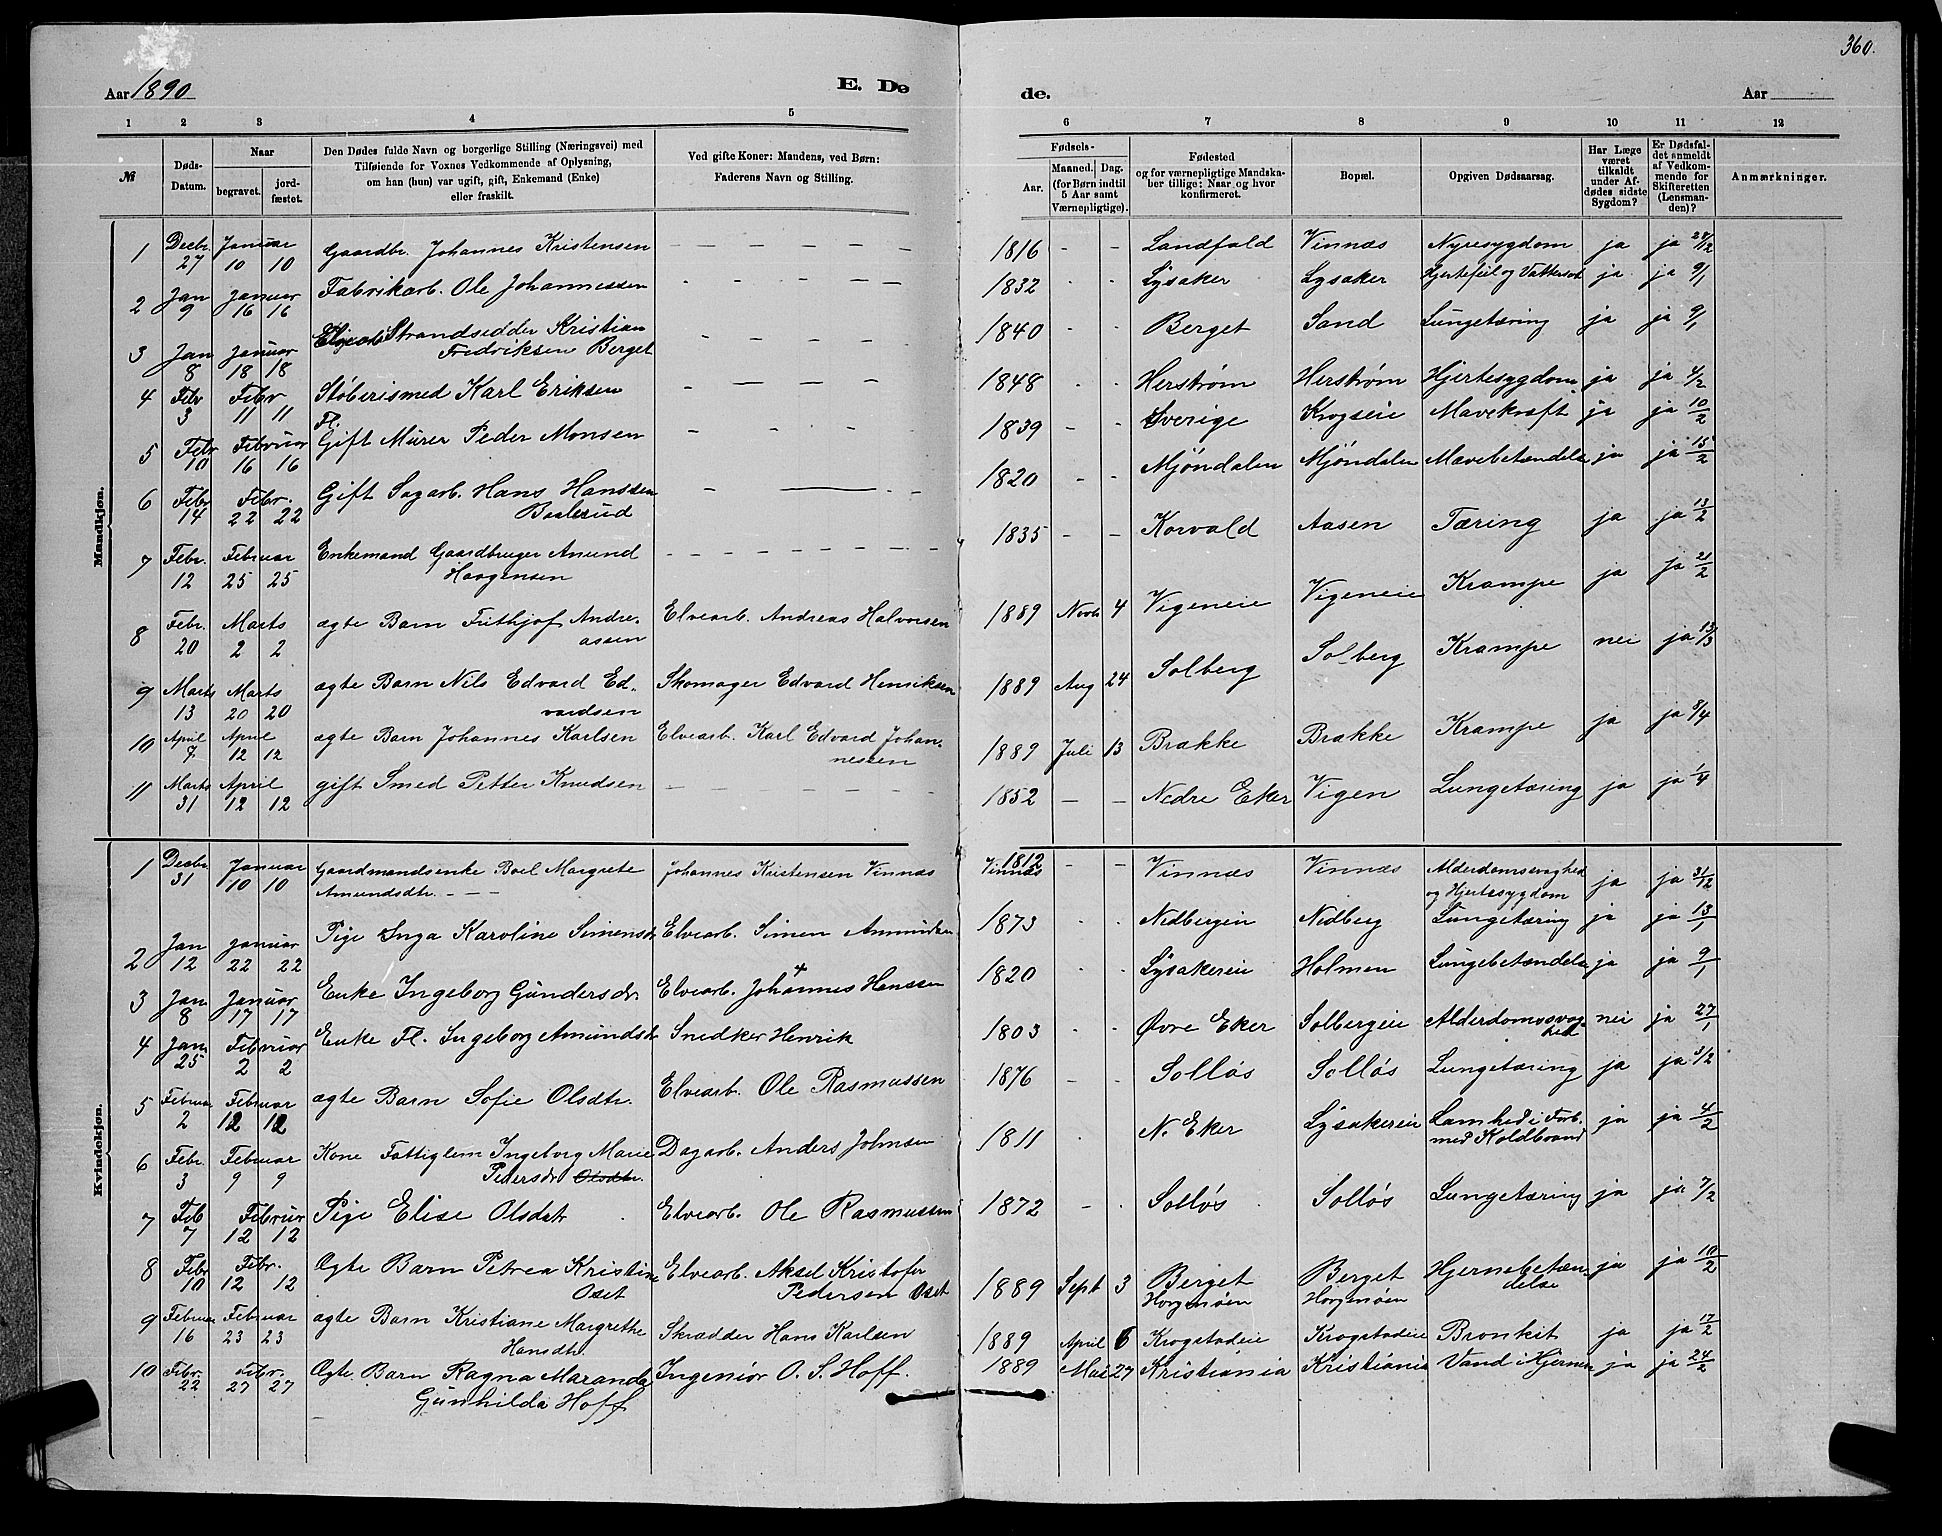 360.
Aar 1890 E. De de. Aar
1 2 3 4 5 6 7 8 9 10 11 12
№ Døds-Datum. Naar begravet. jordfæstet. Den Dødes fulde Navn og borgerlige Stilling (Næringsvei) med Tilføiende for Voxnes Vedkommende af Oplysning, om han (hun) var ugift, gift, Enkemand (Enke) eller fraskilt. Ved gifte Koner: Mandens, ved Børn: Faderens Navn og Stilling. Fødsels- Aar. Maaned. Dag. (for Børn indtil 5 Aar samt Værnepligtige). Fødested og for værnepligtige Mandskaber tillige: Naar og hvor konfirmeret. Bopæl. Opgiven Dødsaarsag. Har Læge været tilkaldt under Afdødes sidste Sygdom? Er Dødsfaldet anmeldt af Vedkommende for Skifteretten (Lensmanden)? Anmærkninger.
Mandkjøn.
1 Decbr. 27 Januar 10 10 Gaardbr. Johannes Kristensen 1816 Landfald Vinnæs Nyresygdom ja ja 28/12
2 Jan 9 Januar 16 16 Fabrikarb. Ole Johannessen 1832 Lysaker Lysaker Hjertefeil og Vattersot ja ja 9/1
3 Jan 8 Januar 18 18 Strandsidder Kristian Fredriksen Berget 1840 Berget Sand Lungetæring ja ja 9/1
4 Febr 3 Febr 11 11 Støberismed Karl Eriksen 1848 Herstrøm Herstrøm Hjertesygdom ja ja 4/2
5 Febr 10 Februar 16 16 Fl. Gift Murer Peder Monsen 1839 Sverige Krogseie Mavekræft ja ja 10/2
6 Febr 14 Febr. 22 22 Gift Sagarb. Hans Hanssen 1820 Mjöndalen Mjöndalen Mavebetændelse ja ja 15/2
7 Febr. 12 Februar 25 25 Enkemand Gaardbruger Amund Haagensen 1835 Korvald Aasen Tæring ja ja 13/2
8 Febr. 20 Marts 2 2 ægte Barn Frithjof Andreassen Elvearb. Andreas Halvorsen 1889 Novb 4 Vigeneie Vigeneie Krampe ja ja 21/2
9 Marts 13 Marts 20 20 ægte Barn Nils Edvard Edvardsen Skomager Edvard Henriksen 1889 Aug 24 Solberg Solberg Krampe nei ja 13/3
10 April 7 April 12 12 ægte Barn Johannes Karlsen Elvearb. Karl Edvard Johannessen 1889 Juli 13 Brække Brække Krampe ja ja 8/4
11 Marts 31 April 12 12 gift Smed Petter Knudsen 1852 Nedre Eker Vigen Lungetæring ja ja 1/4
Kvindekjøn.
1 Decbr 31 Januar 10 10 Gaardmandsenke Boel Margrete Amundsdtr. Johannes Kristensen Vinnæs 1812 Vinnæs Vinnæs Vinnæs Alderdomssvaghed og Hjertesygdom ja ja 31/12
2 Jan 12 Januar 22 22 Pige Inga Karoline Simensdtr Elvearb. Simen Ammundsen 1873 Nedbergeie Nedberg Lungetæring ja ja 13/1
3 Jan 8 Januar 17 17 Enke Ingeborg Gundersdr. Elvearb. Johannes Hanssen 1820 Lysakereie Holmen Lungebetændelse ja ja 9/1
4 Jan 25 Februar 2 2 Enke Fl. Ingeborg Amundsdtr Snedker Henrik 1803 Øvre Eker Solbergeie Alderdomssvaghed nei ja 27/1
5 Februar 2 Februar 12 12 ægte Barn Sofie Olsdtr. Elvearb. Ole Rasmussen 1876 Solløs Solløs Lungetæring ja ja 3/2
6 Febr. 3 Februar 9 9 Kone Fattiglem Ingeborg Marie Pedersdr Olsdtr. Dagarb. Anders Johnsen 1811 N. Eker Lysakereie Lamhed i Forb. med Koldbrand ja ja 4/2
7 Feb 7 Februar 12 12 Pige Elise Olsdatr Elvearb. Ole Rasmussen 1872 Solløs Solløs Lungetæring ja ja 7/2
8 Febr 10 Febr. 12 12 Ægte Barn Petrea Kristine Oset Elvearb. Aksel Kristofer Pedersen Oset 1889 Sept 3 Berget Horgmoen Berget Horgmoen Hjernebetændelse ja ja 10/2
9 Februar 16 Februar 23 23 ægte Barn Kristiane Margrethe Hansdtr. Skrædder Hans Karlsen 1889 April 6 Krogstadeie Krogstadeie Bronkit ja ja 17/2
10 Febr. 22 Febr. 27 27 Ægte Barn Ragna Maranda Gunhilda Hoff Ingeniør O. S. Hoff. 1889 Mai 27 Kristiania Kristiania Vand i Hjernen ja ja 24/2